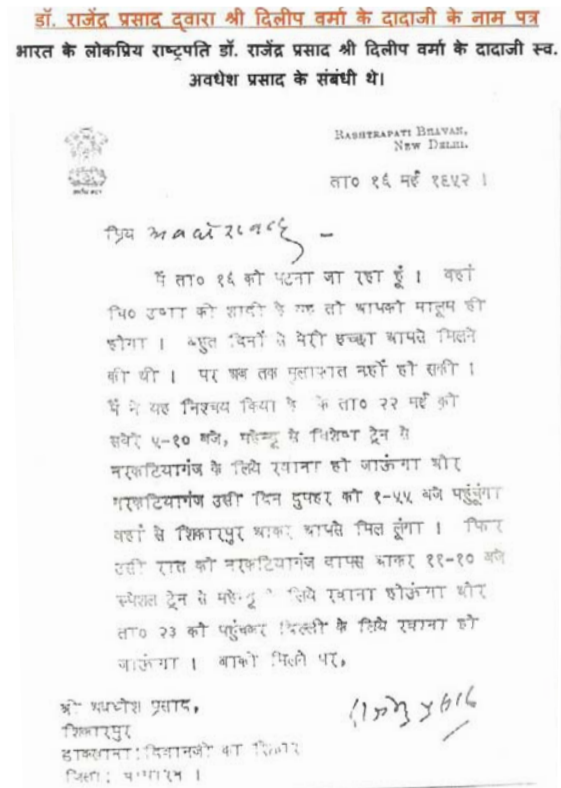 डॉ. राजेंद्र प्रसाद द्वारा श्री दिलीप वर्मा के दादाजी के नाम पत्र
भारत के लोकप्रिय राष्ट्रपति डॉ. राजेंद्र प्रसाद श्री दिलीप वर्मा के दादाजी स्व.
अवधेश प्रसाद के संबंधी थे।
RASHTRAPATI BHAVAN,
NEW DELHI.
ता० १६ मई १९५२ ।
प्रिय
मैं ता० १६ को पटना जा रहा हूं । वहां
चि० उषा की शादी है यह तो आपको मालूम ही
होगा । बहुत दिनों से मेरी इच्छा आपसे मिलने
की थी । पर अब तक मुलाकात नहीं हो सकी ।
मैं ने यह निश्चय किया है कि ता० २२ मई को
सवेरे ५-१० बजे, महेन्द्रू से विशेष ट्रेन से
नरकटियागंज के लिये रवाना हो जाऊंगा और
नरकटियागंज उसी दिन दुपहर को १-५५ बजे पहुंचूंगा
वहां से शिकारपुर आकर आपसे मिल लूंगा । फिर
उसी रात को नरकटियागंज वापस आकर ११-१० बजे
स्पेशल ट्रेन से महेन्द्रू के लिये रवाना होऊंगा और
ता० २३ को पहुंचकर दिल्ली के लिये रवाना हो
जाऊंगा । बाकी मिलने पर,
श्री अवधेश प्रसाद,
शिकारपुर
डाकखाना: दिवानजी का शिकार
जिला: चम्पारन ।